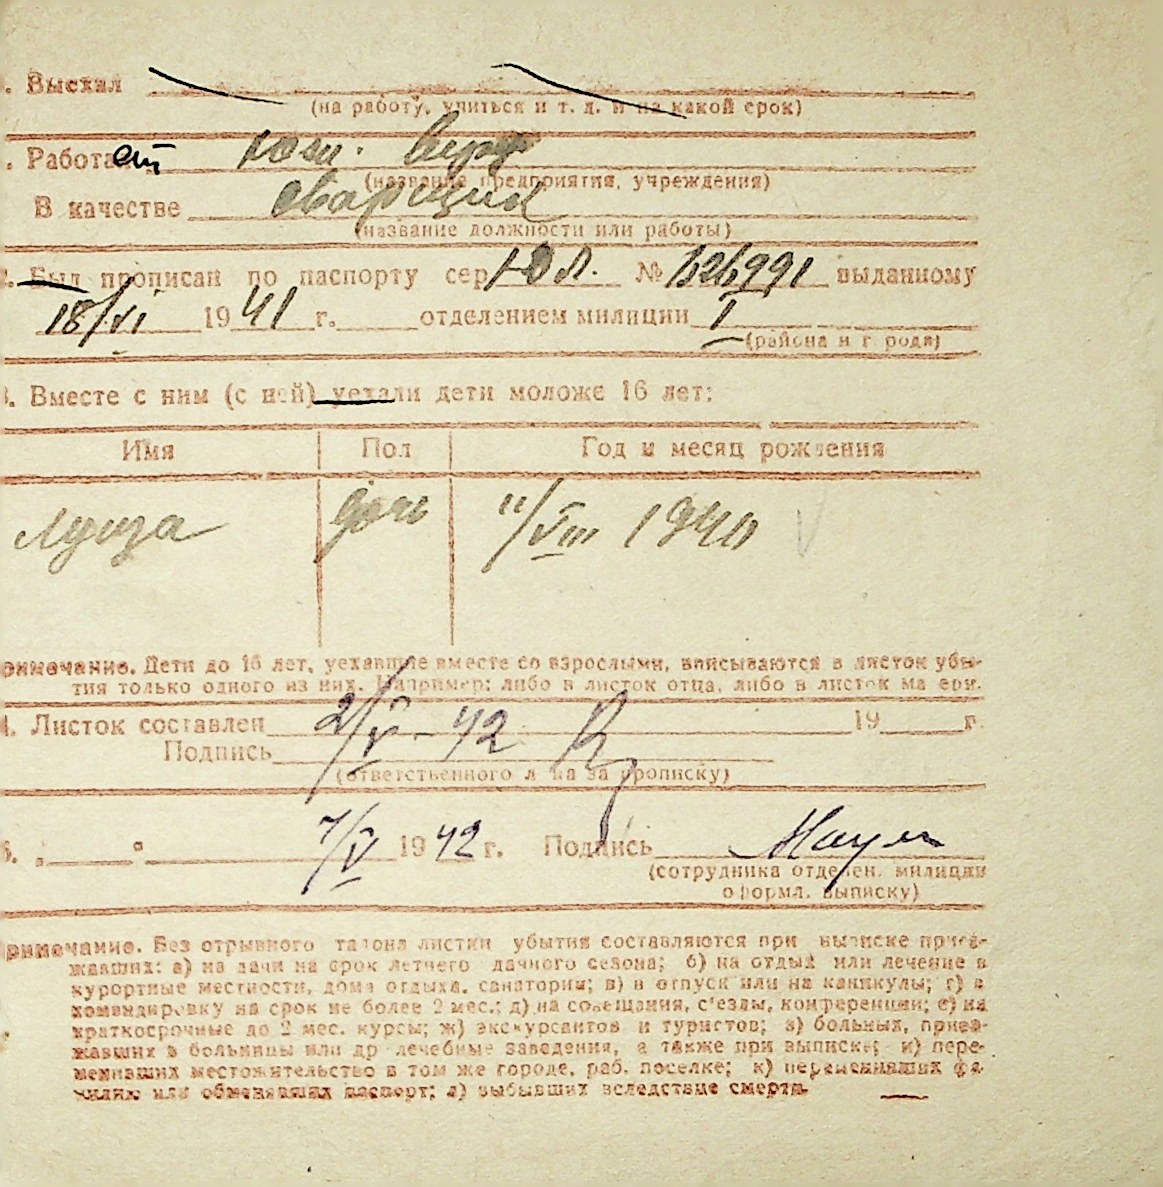 . Выехал
(на работу, учиться и т. д. и на какой срок)
. Работает
(название предприятия, учреждения)
В качестве сварщик
(название должности или работы)
. Был прописан по паспорту сер № 626991 выданному
18/VI 1941 г. отделением милиции I
(района и города)
. Вместе с ним (с ней) уехали дети моложе 16 лет:
Имя Пол Год и месяц рождения
Луиза дочь 11/VIII 1940
римечание. Дети до 16 лет, уехавшие вместе со взрослыми, вписываются в листок убы-
тия только одного из них. Например: либо в листок отца, либо в листок ма ери.
4. Листок составлен 2/V-42 19 г.
Подпись
(ответственного л ца за прописку)
5. „ “ 7/V 1942 г. Подпись
(сотрудника отделен. милиции
оформл. выписку)
римечание. Без отрывного талона листки убытия составляются при выписке приез-
жавших: а) на дачи на срок летнего дачного сезона; б) на отдых или лечение в
курортные местности, дома отдыха, санатории; в) в отпуск или на каникулы; г) в
командировку на срок не более 2 мес.; д) на совещания, с'езды, конференции; е) на
краткосрочные до 2 мес. курсы; ж) экскурсантов и туристов; з) больных, приез-
жавших в больницы или др лечебные заведения, а также при выписке; и) пере-
менивших местожительство в том же городе, раб. поселке; к) переменивших фа-
милию или обменявших паспорт; л) выбывших вследствие смерти.